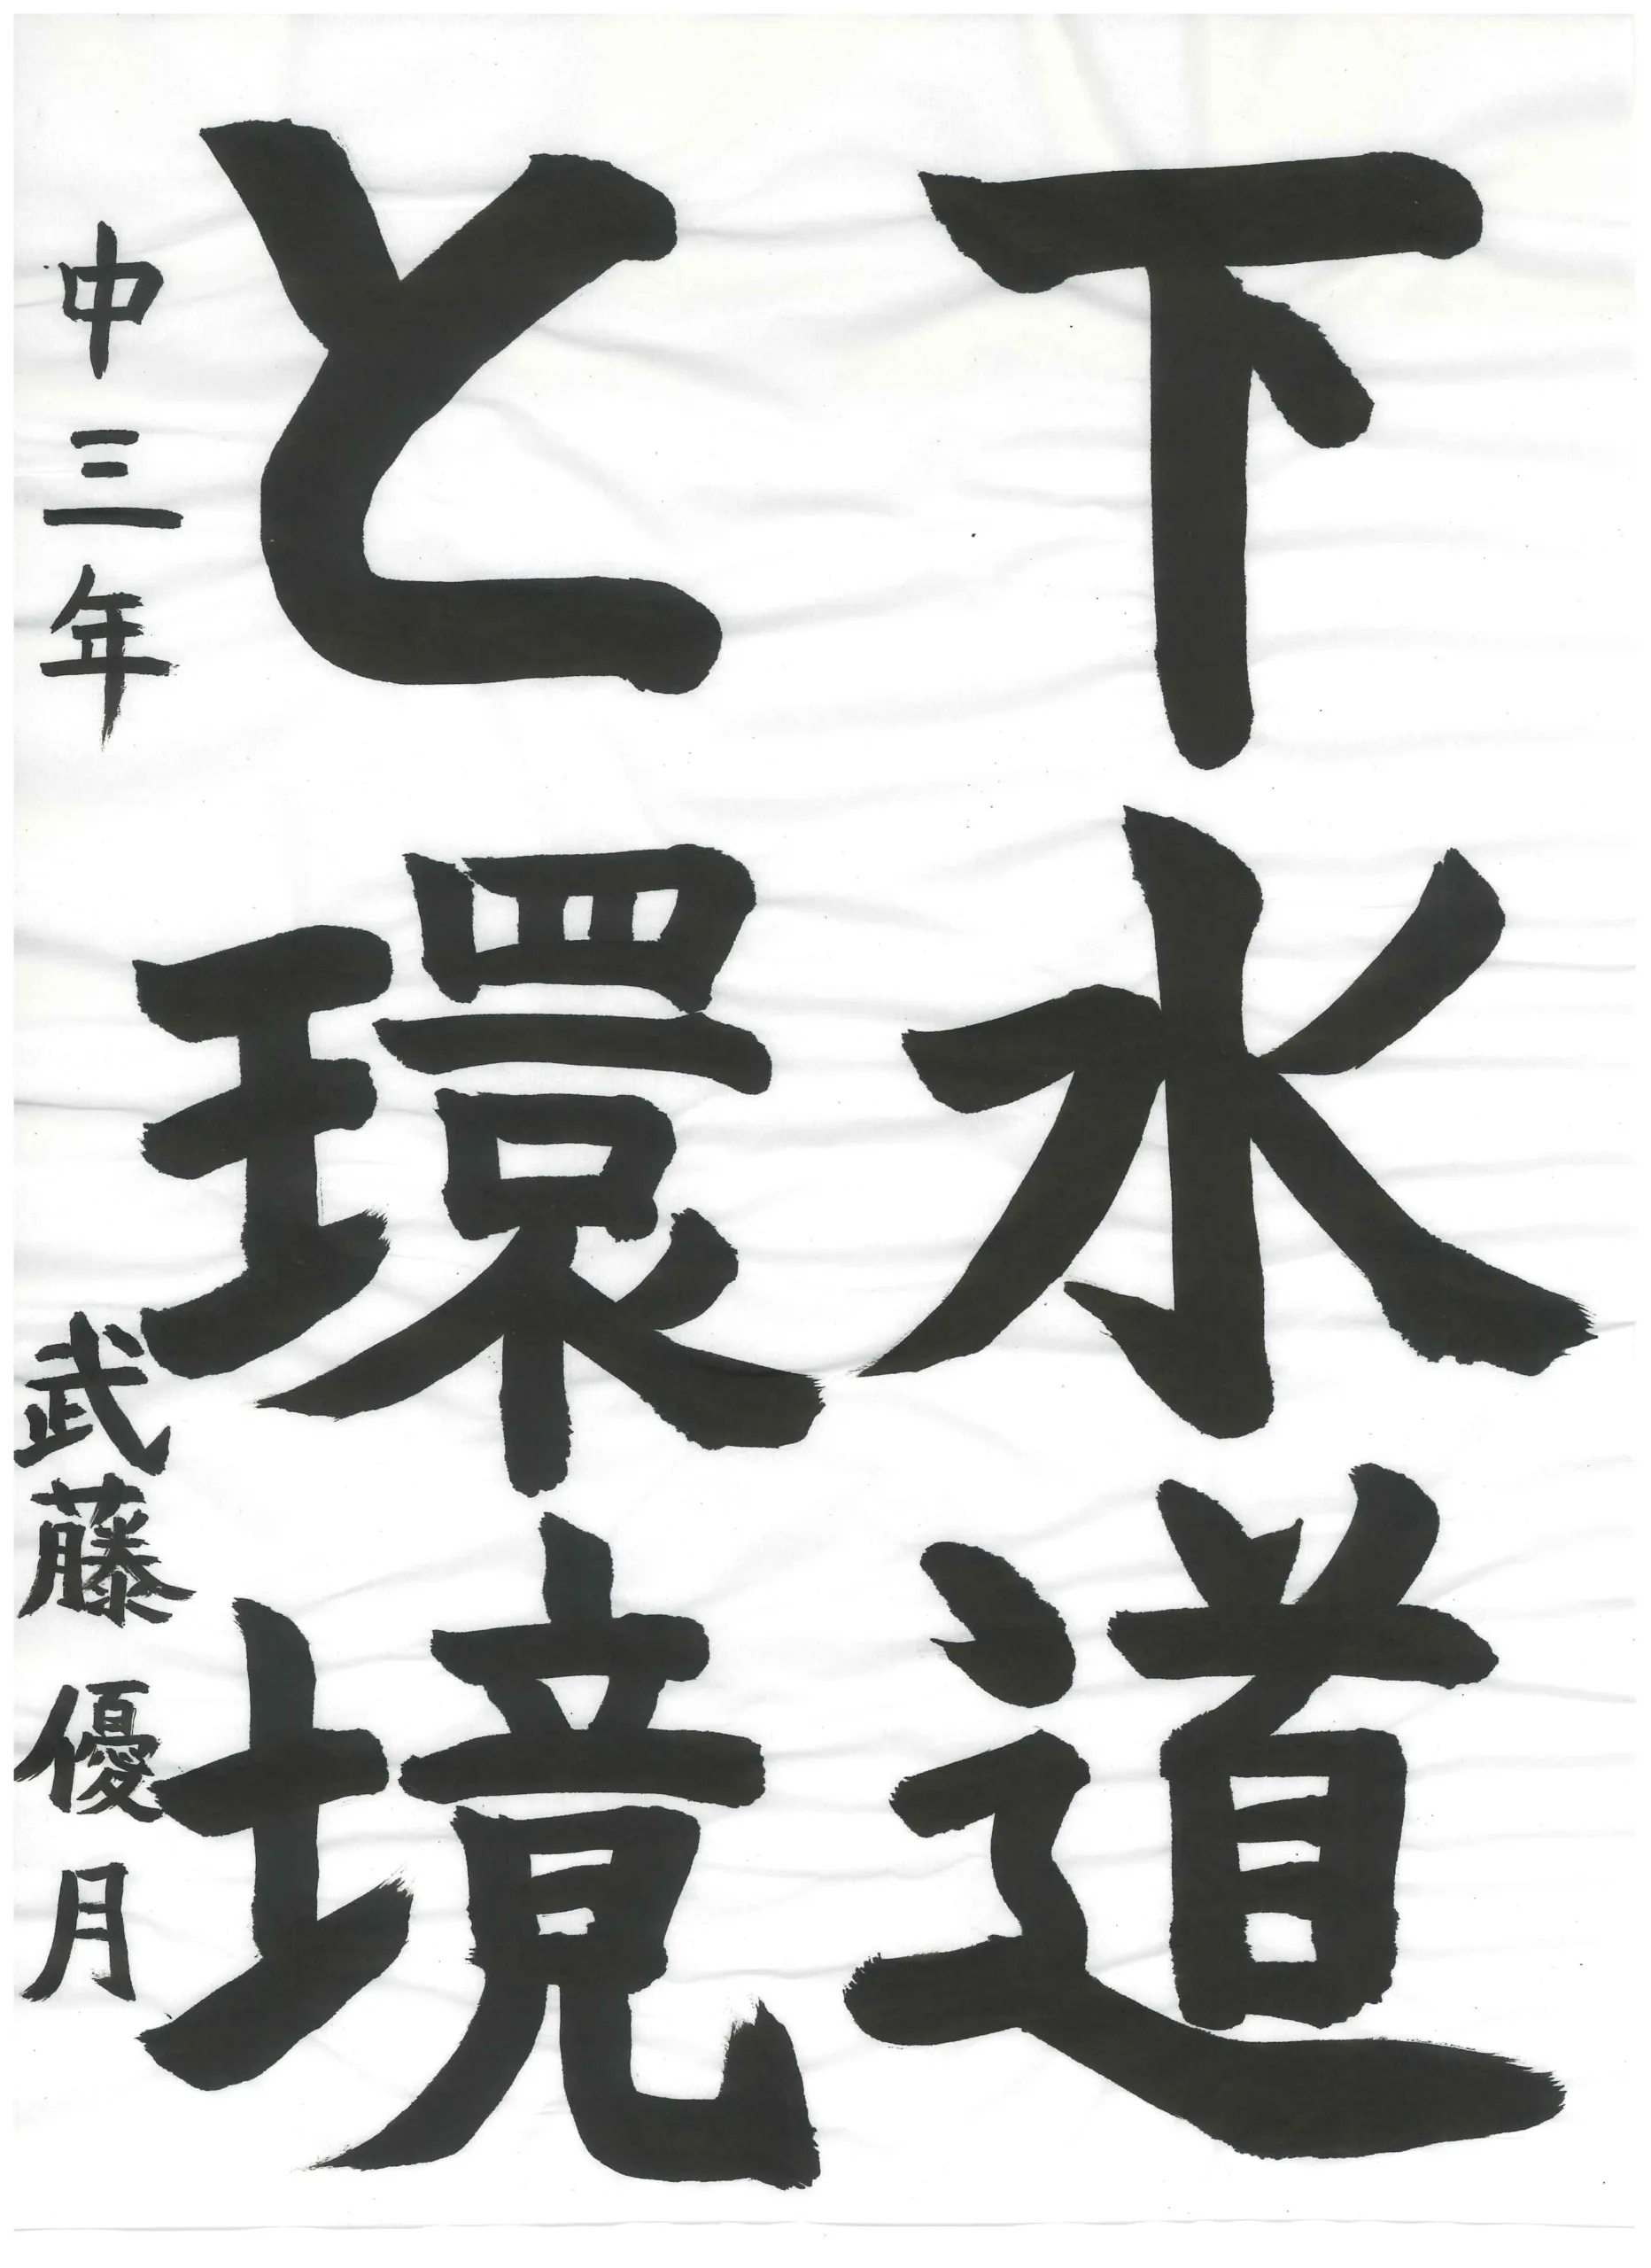 下水道
と環境
中三年 武藤優月